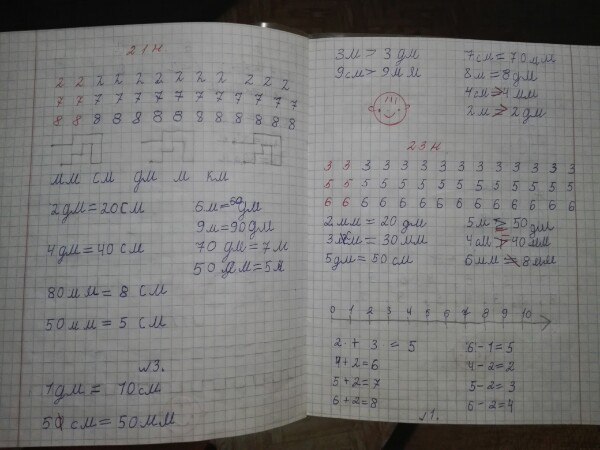 21 н
2 2 2 2 2 2 2 2 2 2 2 2
7 7 7 7 7 7 7 7 7 7 7 7 7
8 8 8 8 8 8 8 8 8 8 8 8 8
мм см дм м км
2 дм = 20 см
4 дм = 40 см
80 мм = 8 см
50 мм = 5 см
6 м = 60 дм
9 м = 90 дм
70 дм = 7 м
50 дм = 5 м
№3.
1 дм = 10 см
5 см = 50 мм
3 м > 3 дм
9 см > 9 мм
7 см = 70 мм
8 м = 8 дм
4 см > 4 мм
2 м > 2 дм
23 н
3 3 3 3 3 3 3 3 3 3 3 3 3 3
5 5 5 5 5 5 5 5 5 5 5 5 5 5
6 6 6 6 6 6 6 6 6 6 6 6 6 6
2 мм = 20 дм
3 см = 30 мм
5 дм = 50 см
5 м = 50 дм
4 см > 40 мм
6 мм = 8 мм
0 1 2 3 4 5 6 7 8 9 10
2 + 3 = 5
4 + 2 = 6
5 + 2 = 7
6 + 2 = 8
6 - 1 = 5
4 - 2 = 2
5 - 2 = 3
6 - 2 = 4
№1.